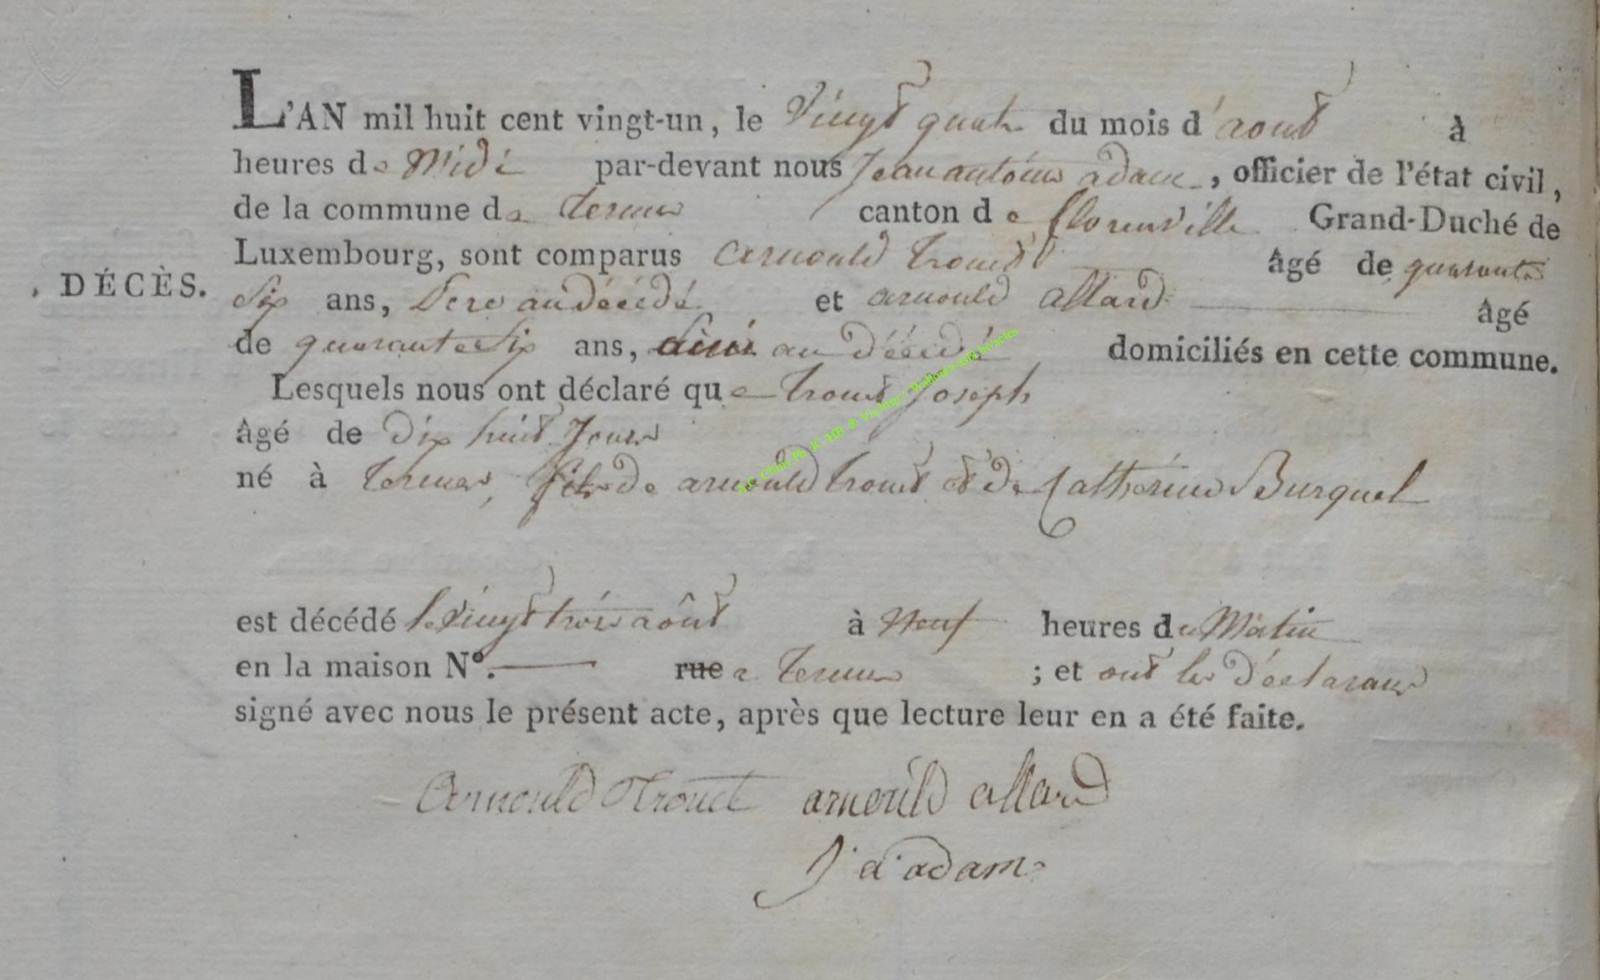 L'AN mil huit cent vingt-un, le vingt quatre du mois d'aout à
heures de Midi par-devant nous Jean antoine adam, officier de l'état civil,
de la commune de termes canton de florenville Grand-Duché de
Luxembourg, sont comparus arnould trouet âgé de quarante
DÉCÈS.
Six ans, Pere au décédé et arnould allard âgé
de quarante Six ans, au décédé domiciliés en cette commune.
Lesquels nous ont déclaré que trouet Joseph
âgé de dix huit Jours
né à termes, fils de arnould trouet et de Catherine Burquel
est décédé le vingt trois août à neuf heures du Matin
en la maison N°. rue a termes ; et ont les déclarans
signé avec nous le présent acte, après que lecture leur en a été faite.
Arnould Trouet arnould allard
J a adam